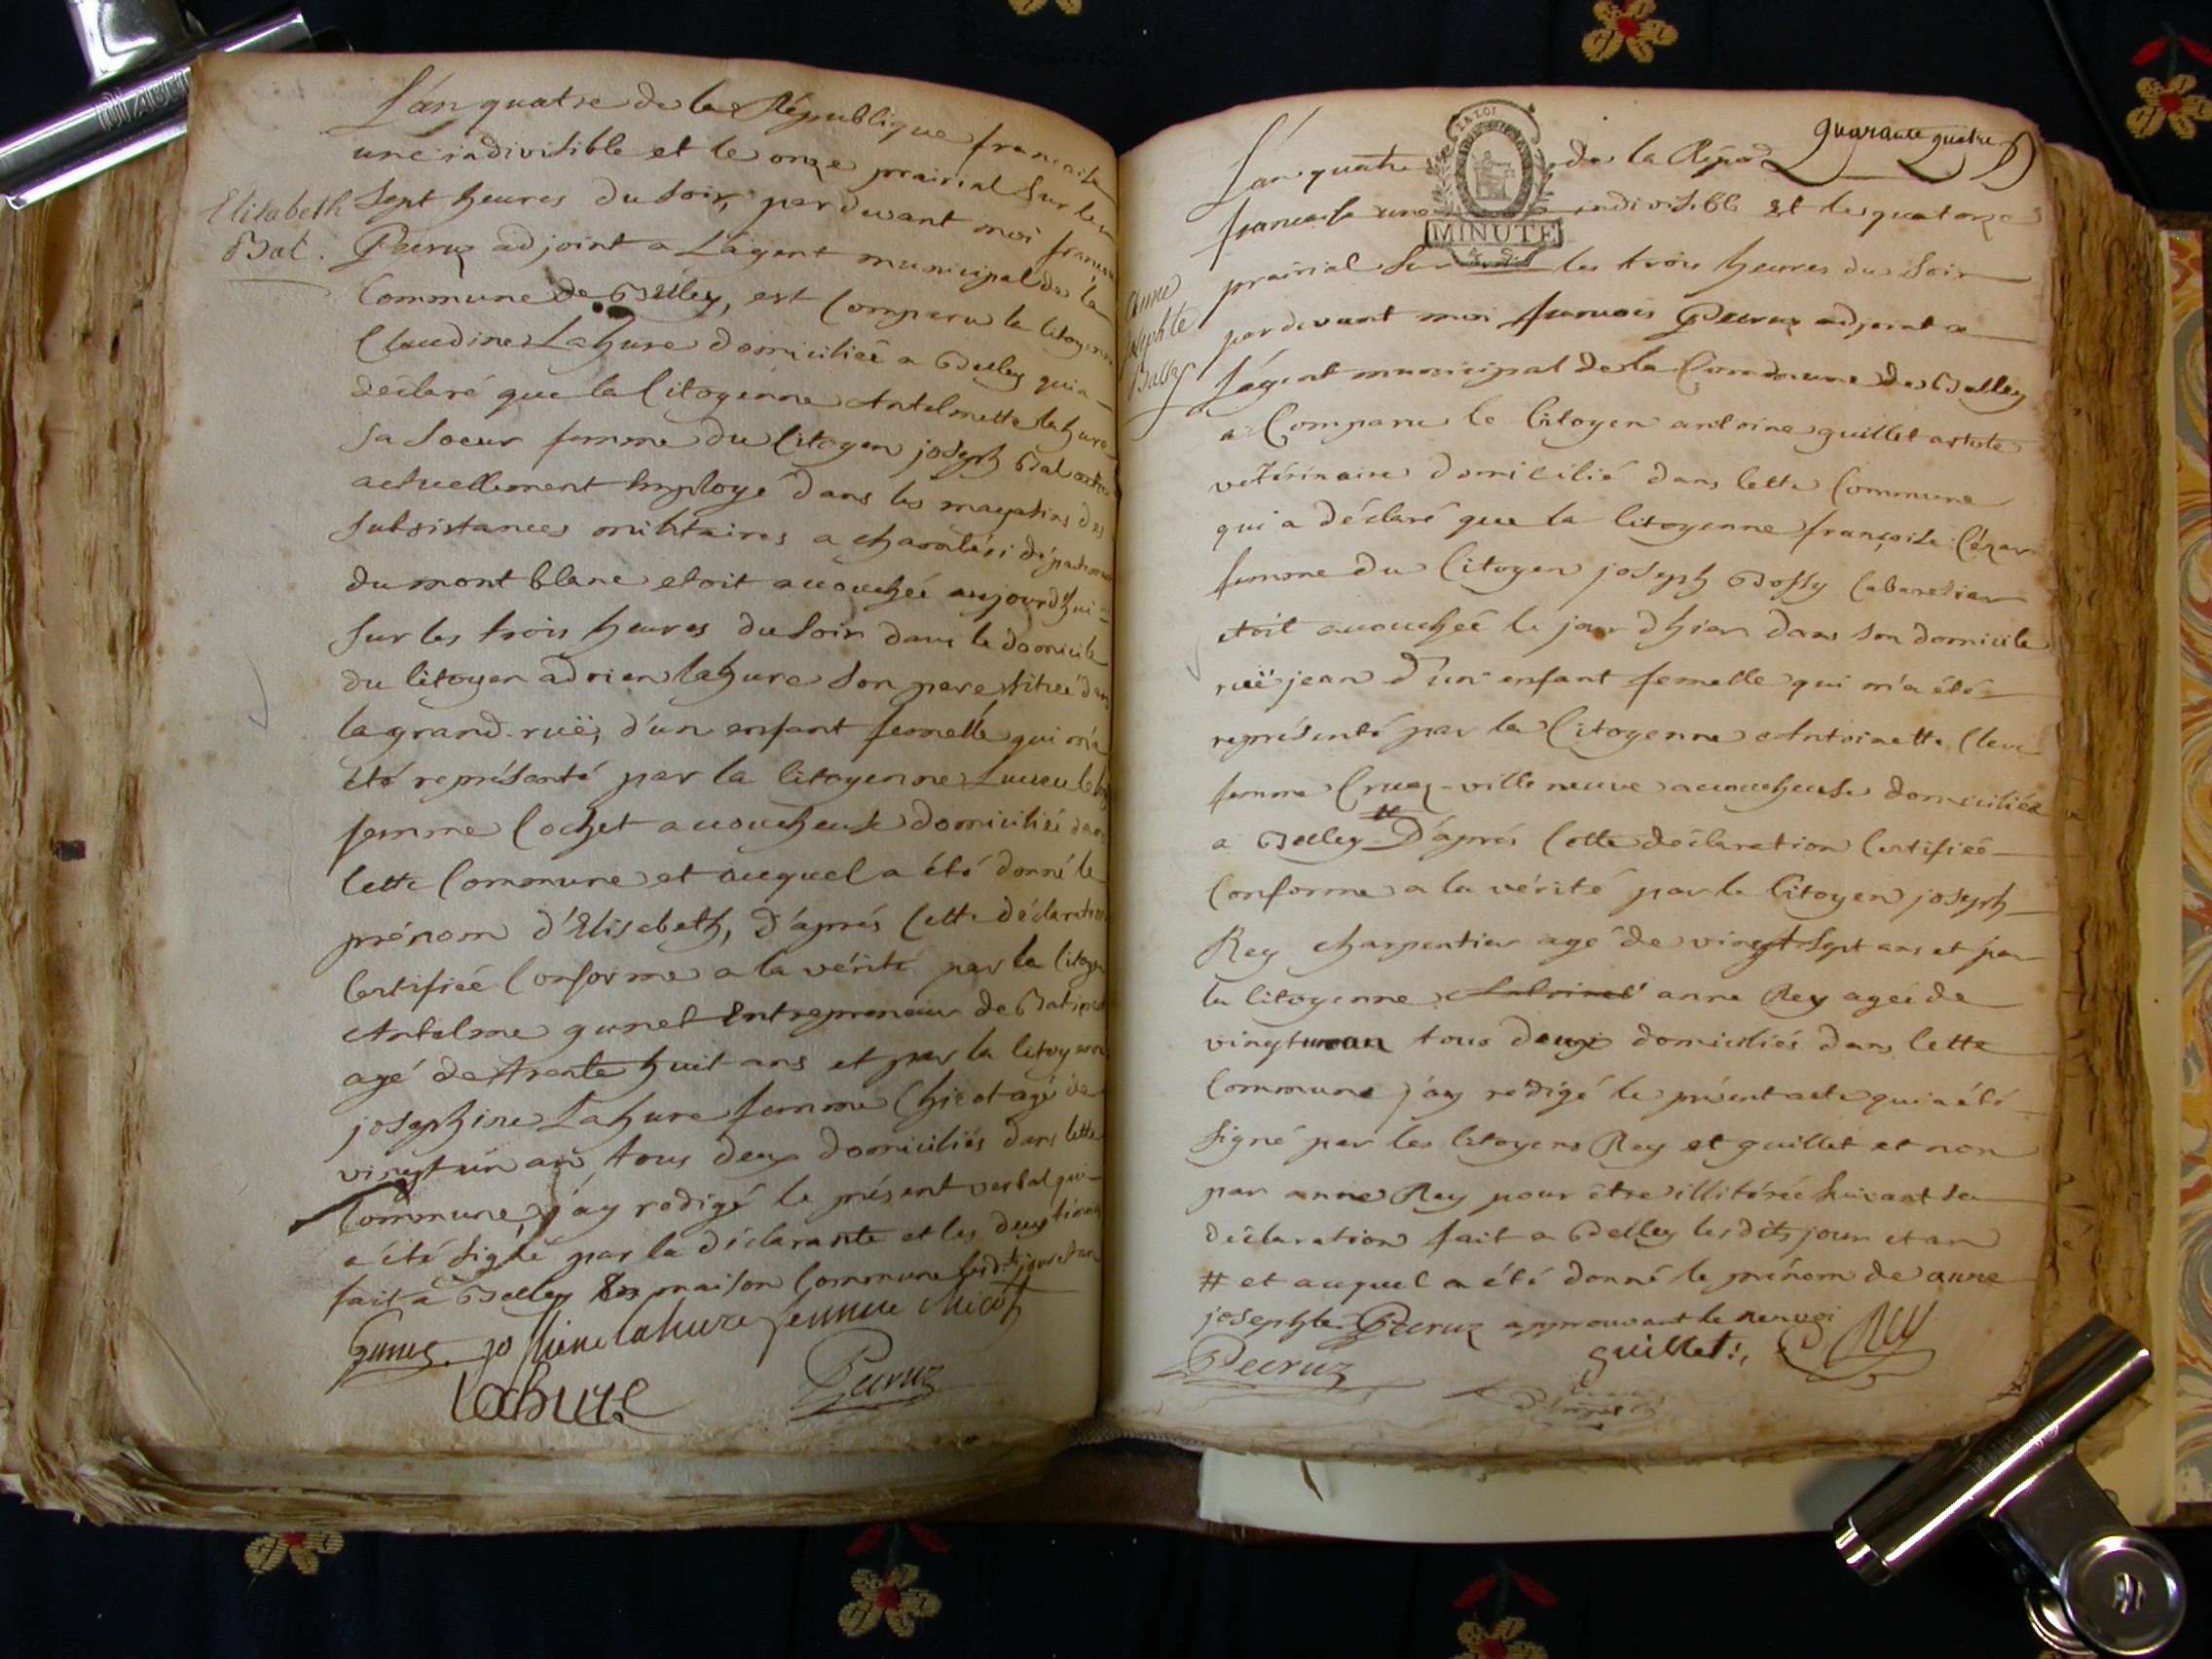 L'an quatre de la République francaise
une indivisible et le onze prairial sur les
sept heures du soir, par devant moi françois
Elisabeth
Bal.
Pecruz adjoint a L'agent municipal de la
Commune de Belley, est Comparu la Citoyenne
Claudine Lahure domiciliée a Belley qui a
déclaré que la Citoyenne Antelmette lahure
sa soeur femme du Citoyen joseph Bal
actuellement Employé dans les magasins des
subsistances militaires a département
du mont blanc etoit accouchée aujourd'hui
sur les trois heures du soir dans le domicile
du Citoyen adrien lahure son pere situé dans
la grand-ruë, d'un enfant femelle qui m'a
été représenté par la Citoyenne
femme Cochet accoucheuse domiciliée dans
Cette Commune et auquel a été donné le
prénom d'Elisabeth, D'aprés Cette déclaration
Certifiée Conforme a la vérité par le Citoyen
Antelme gunet Entrepreneur de Batiment
agé de trente huit ans et par la Citoyenne
josephine Lahure femme Chicot agé de
vingt un an, tous deux domiciliés dans Cette
Commune, j'ay redigé le présent verbal qui
a été signé par la déclarante et les deux témoins
fait a Belley maison Commune lesdts jour et an
gunet josephine lahure femme chicot
lahure Pecruz
quarante quatre
L'an quatre de la Répub
LA LOI
MINUTE
francaise une indivisible et le quatorze
prairial sur les trois heures du soir
anne
josephte
Bossy
par devant moi francois Pecruz adjoint a
L'agent municipal de la Commune de Belley
a Comparu le Citoyen antoine guillet artiste
vetérinaire domicilié dans Cette Commune
qui a déclaré que la Citoyenne françoise Cézar
femme du Citoyen joseph Bossy Cabaretier
etoit accouchée le jour d'hier dans son domicile
ruë jean d'un enfant femelle qui m'a été
représenté par la Citoyenne Antoinette
femme Cruez-ville neuve accoucheuse domiciliée
a Belley # D'aprés Cette déclaration Certifiée
Conforme a la vérité par le Citoyen joseph
Rey charpentier agé de vingt sept ans et par
la Citoyenne anne Rey ageé de
vingt un an tous deux domiciliés dans Cette
Commune j'ay redigé le présent acte qui a été
signé par les Citoyens Rey et guillet et non
par anne Rey pour être illitérée suivant sa
déclaration fait a Belley lesdits jour et an
# et auquel a été donné le prénom de anne
josephte Pecruz approuvant le renvoi
Pecruz guillet Rey